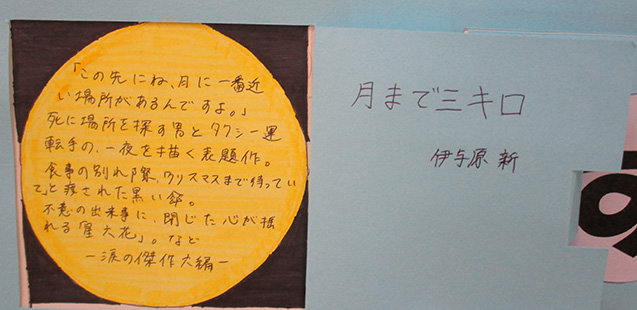 「この先にね、月に一番近
い場所があるんですよ。」
死に場所を探す男とタクシー運
転手の、一夜を描く表題作。
食事の別れ際、「クリスマスまで待ってい
て」と渡された黒い傘。
不意の出来事に、閉じた心が揺
れる「星六花」。など
ー涙の傑作六編ー
月まで三キロ
伊与原 新